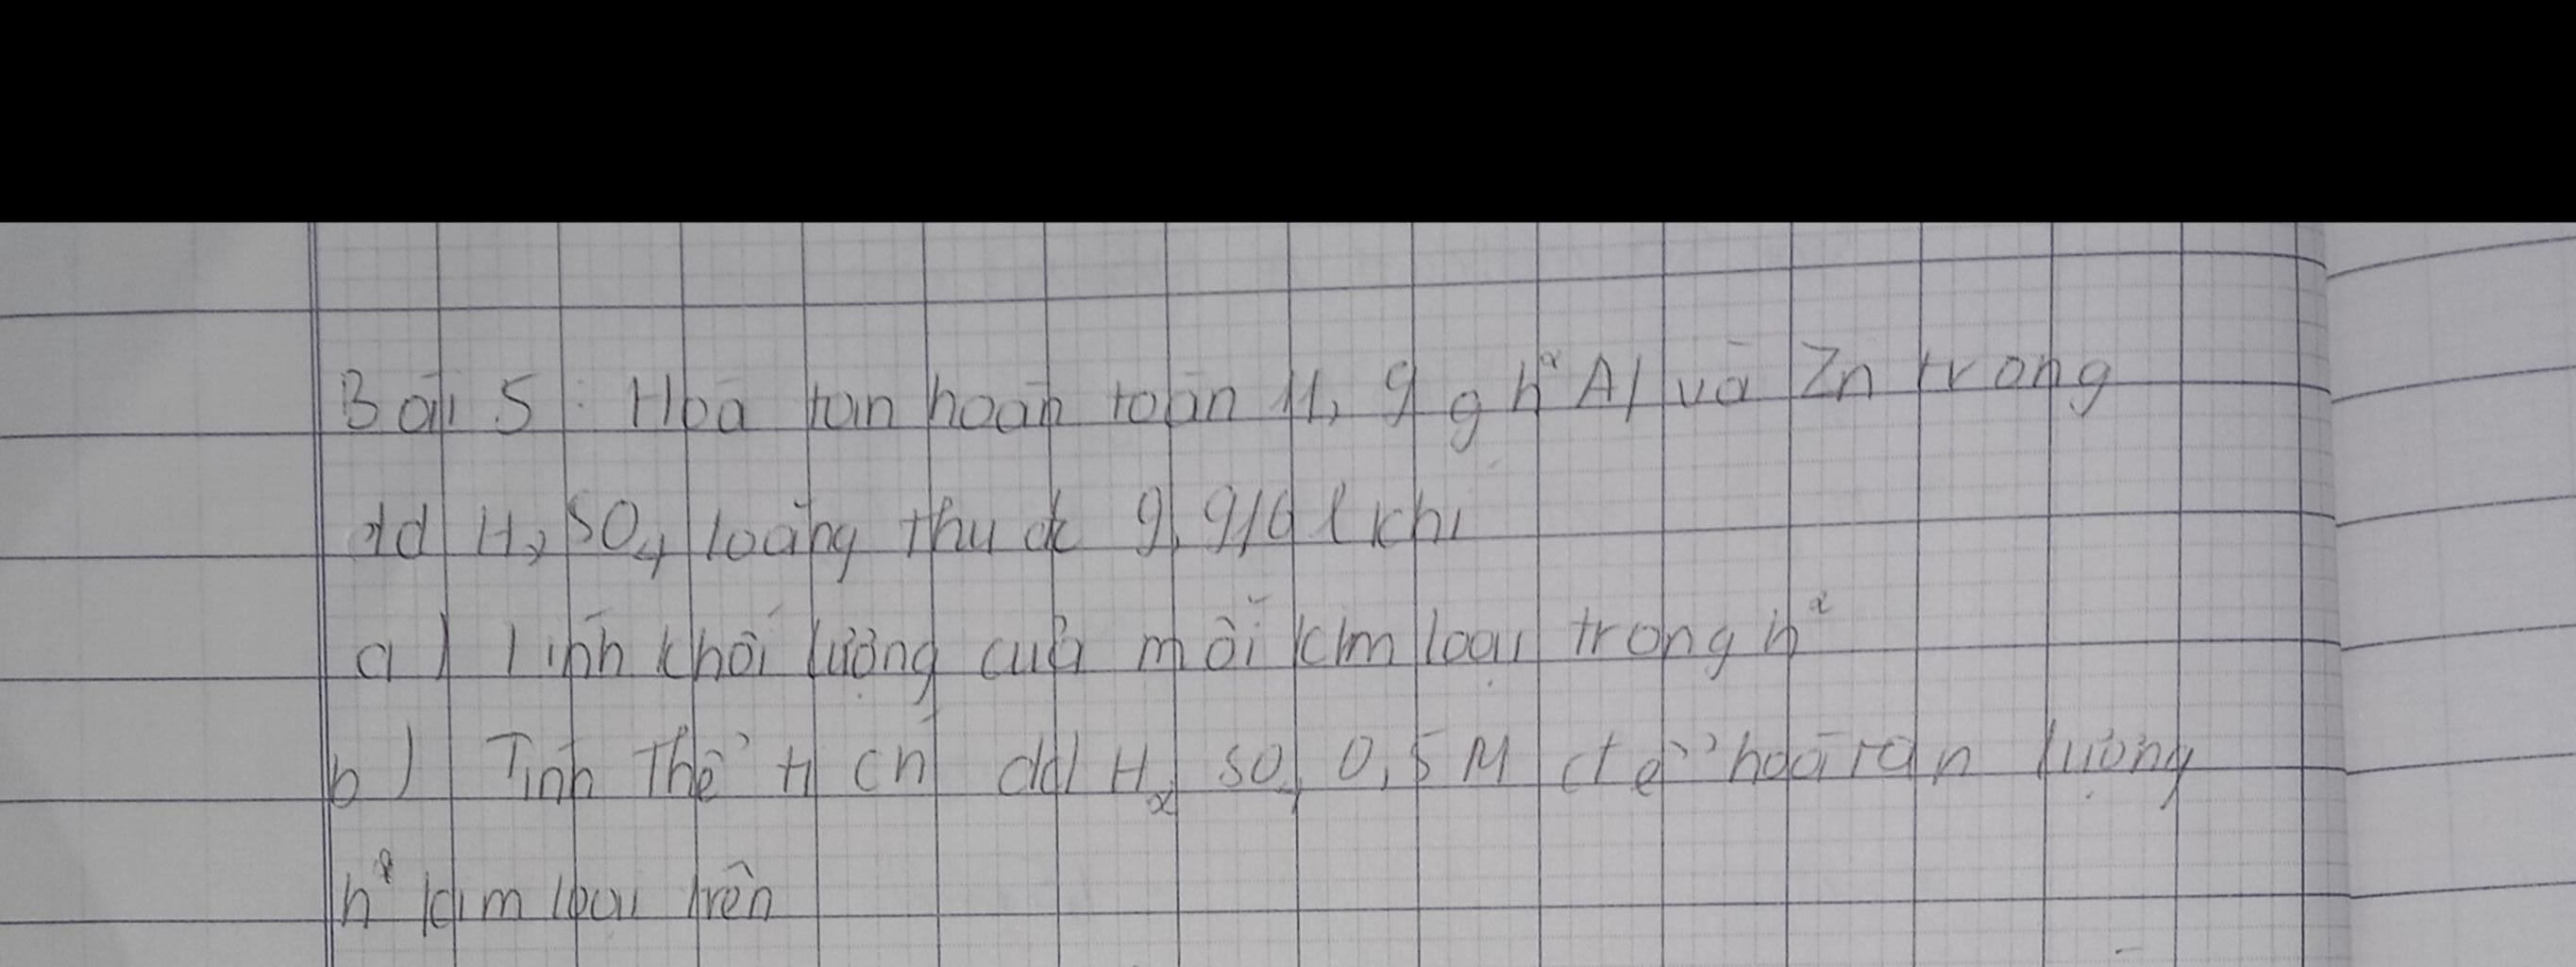 Bài 5: Hoà tan hoàn toàn 11,9 g h² Al và Zn trong
dd H₂SO₄ loãng thu đc 9,916 l khí
a) Tính khối lượng của mỗi kim loại trong h²
b) Tính thể tí cn dd H₂SO₄ 0,5M để hoà tan lượng
h² kim loại trên